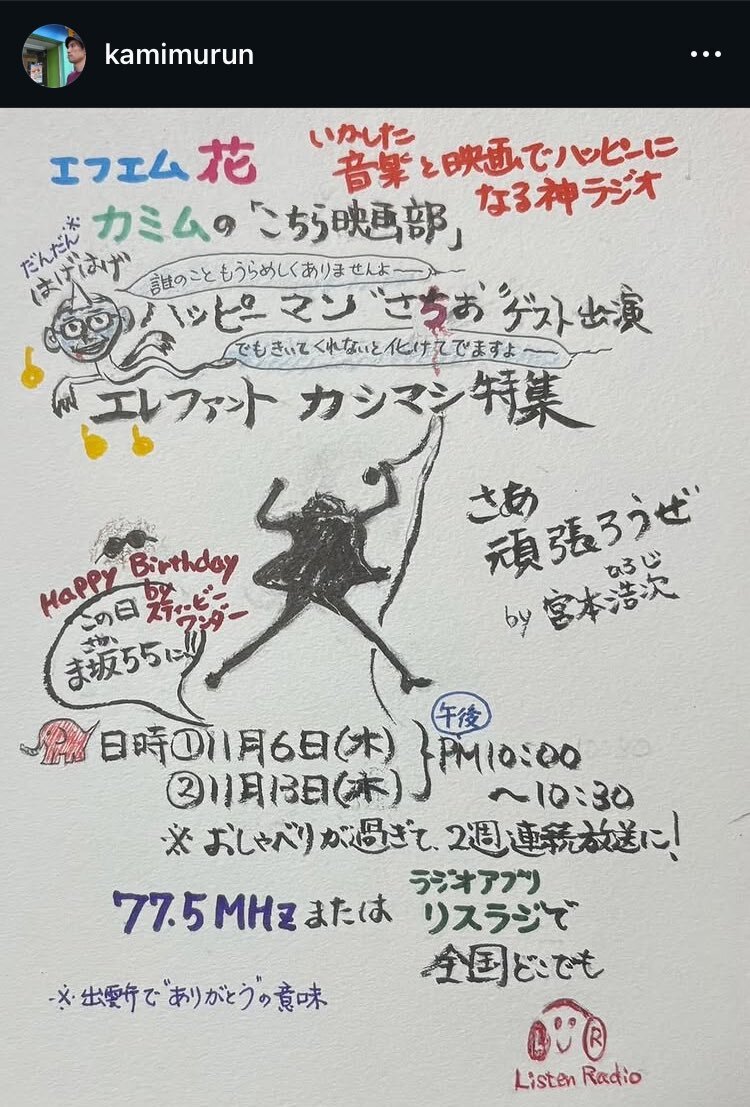 kamimurun
エフエム花
いかした
音楽と映画でハッピーに
なる神ラジオ
カミムの「こちら映画部」
だんだん※
はげはげ
誰のこともうらめしくありませんよ〜
ハッピーマン"さちお"ゲスト出演
でもきいてくれないと化けてでますよ〜
エレファントカシマシ特集
さあ
頑張ろうぜ
by 宮本浩次
ひろじ
Happy Birthday
by
スティービー
ワンダー
この日
さか
ま坂55に!!!
日時①11月6日(木)
②11月13日(木)
午後
PM10:00
〜10:30
※おしゃべりが過ぎて、2週連続放送に!
77.5MHzまたは
ラジオアプリ
リスラジで
全国どこでも
※出雲弁で"ありがとう"の意味
L R
Listen Radio